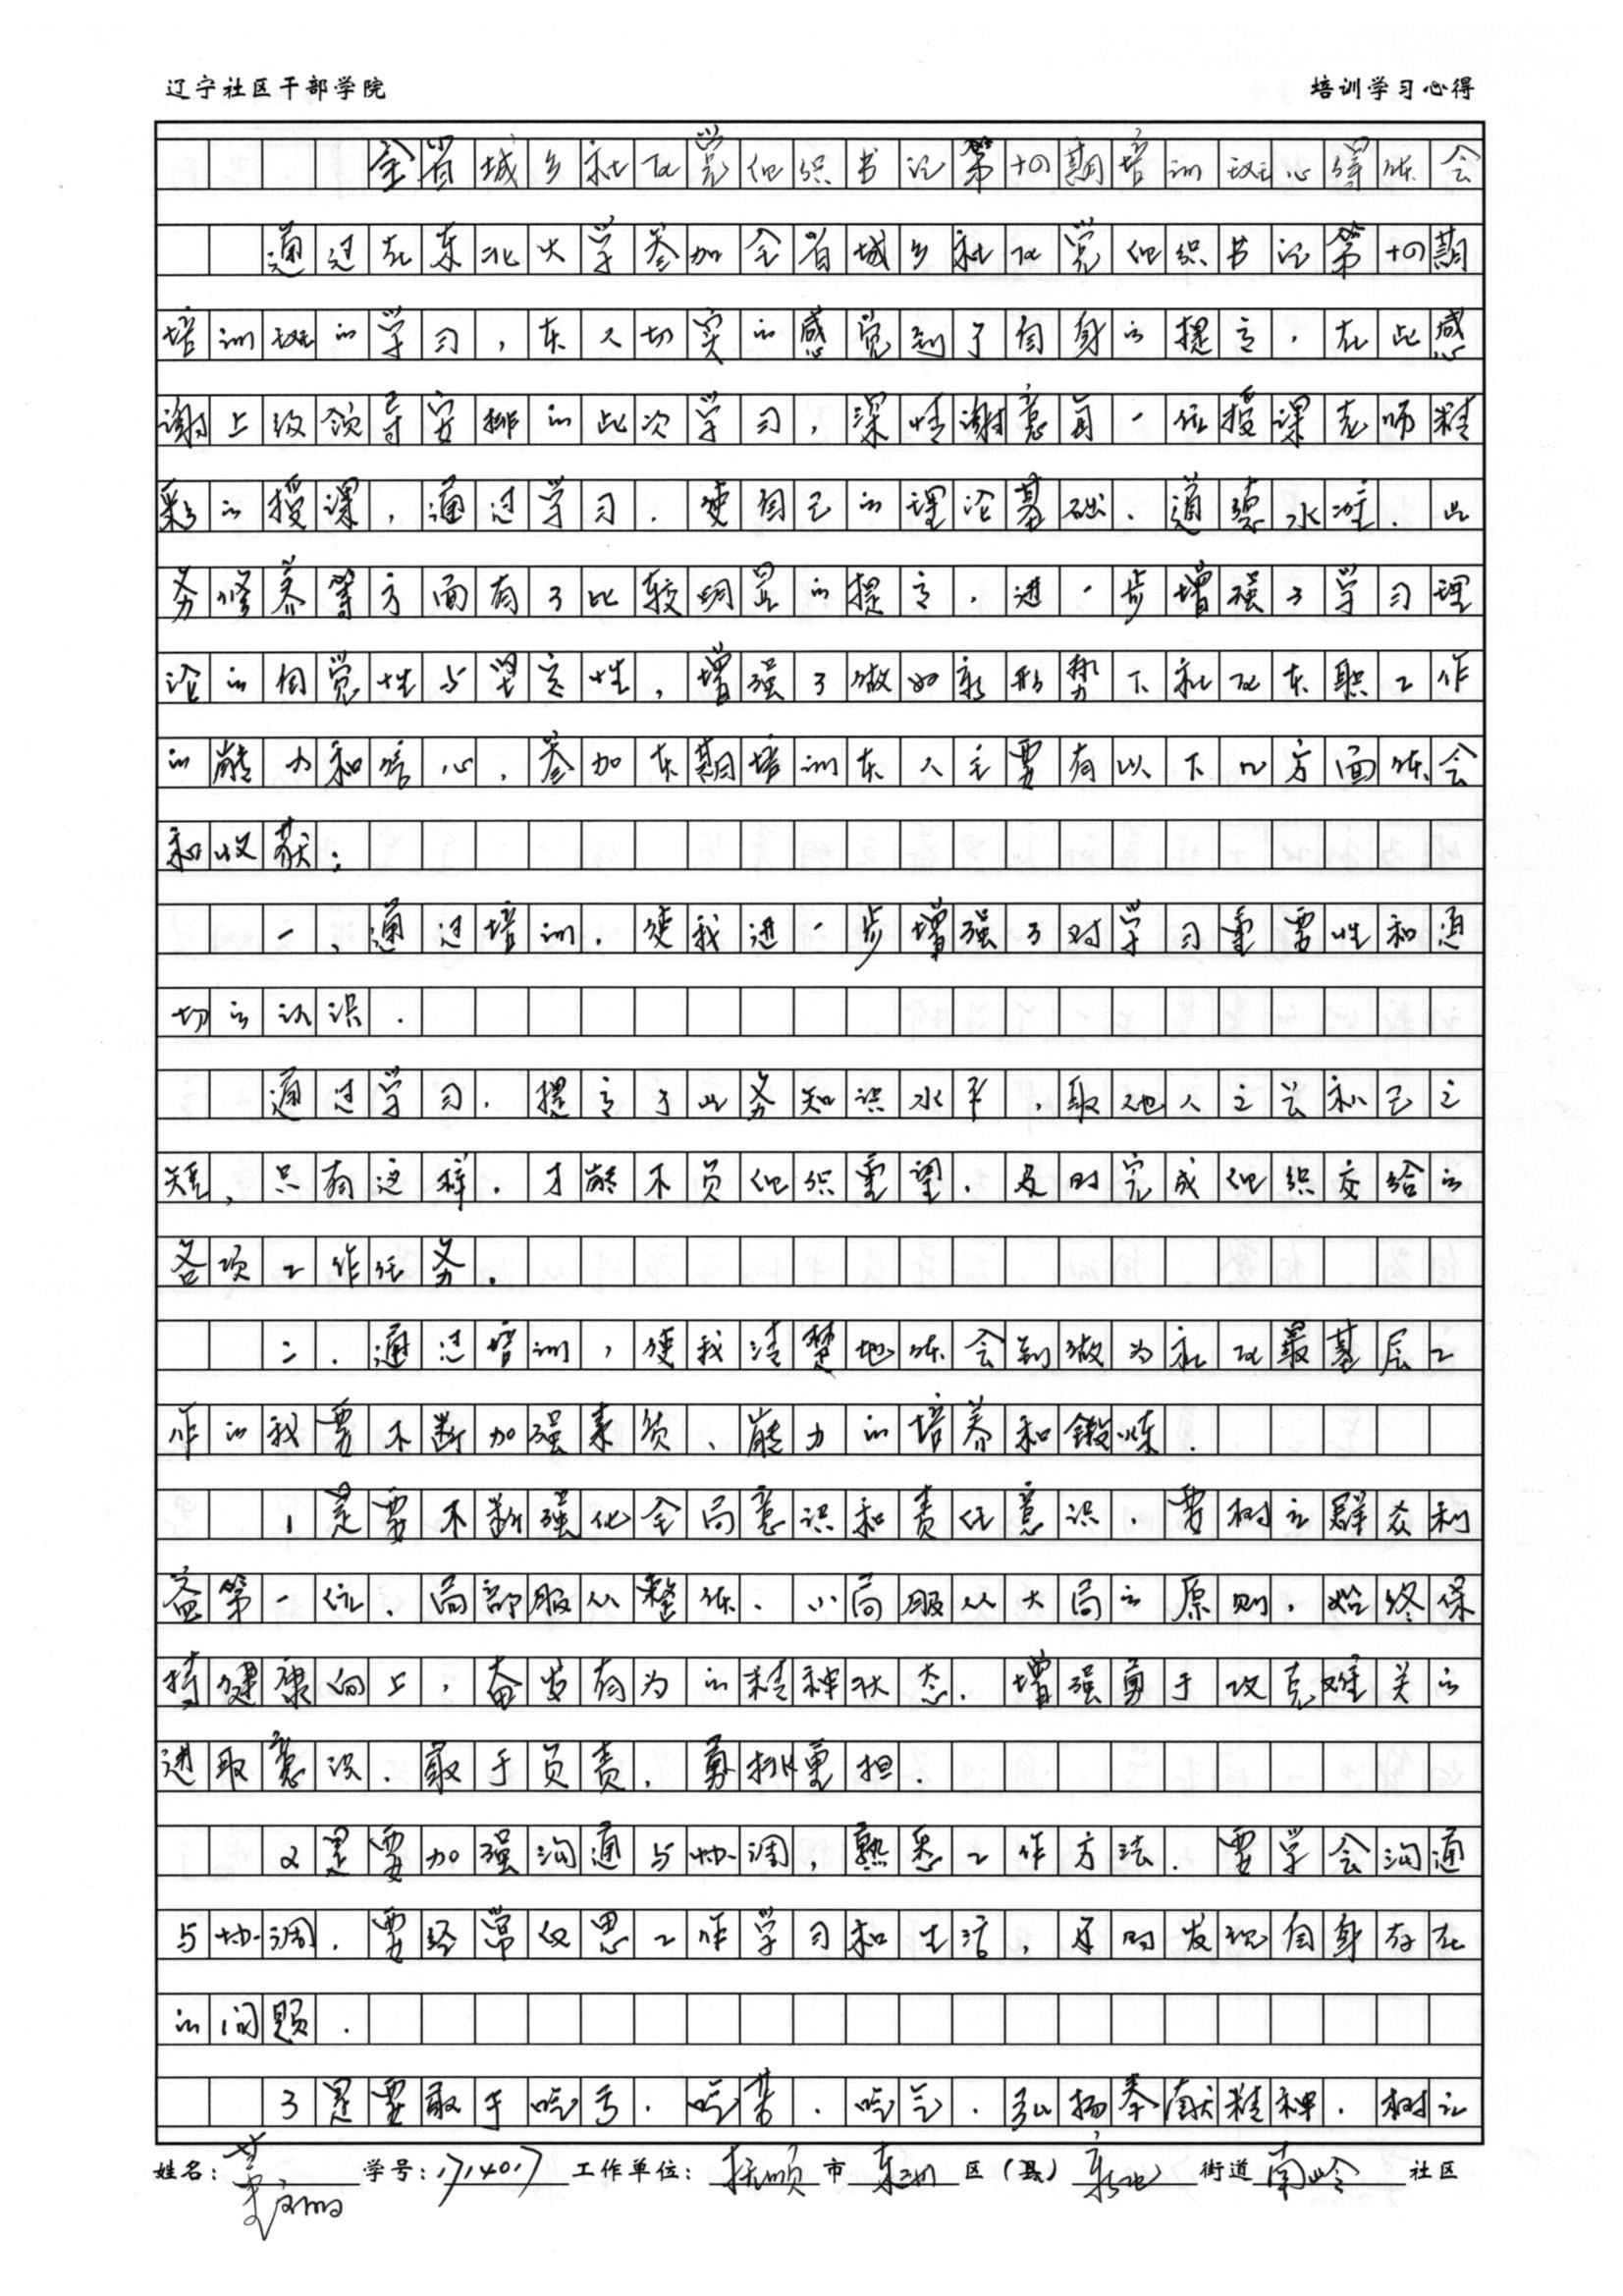 辽宁社区干部学院 培训学习心得
全省城乡社区党组织书记第十四期培训班心得体会
通过在东北大学参加全省城乡社区党组织书记第十四期
培训班的学习，本人切实的感觉到了自身的提高，在此感
谢上级领导安排的此次学习，深情谢意每一位授课老师精
彩的授课，通过学习，使自己的理论基础、道德水准、业
务修养等方面有了比较明显的提高，进一步增强了学习理
论的自觉性与坚定性，增强了做好新形势下社区本职工作
的能力和信心，参加本期培训本人主要有以下几方面体会
和收获：
一，通过培训，使我进一步增强了对学习重要性和迫
切的认识．
通过学习，提高了业务知识水平，取他人之长补己之
短，只有这样，才能不负组织重望，及时完成组织交给的
各项工作任务．
二．通过培训，使我清楚地体会到做为社区最基层工
作的我要不断加强素质、能力的培养和锻炼．
1是要不断强化全局意识和责任意识，要树立群众利
益第一位、局部服从整体、小局服从大局的原则，始终保
持健康向上，奋发有为的精神状态，增强勇于攻克难关的
进取意识，敢于负责，勇挑重担．
2是要加强沟通与协调，熟悉工作方法．要学会沟通
与协调，要经常反思工作学习和生活，及时发现自身存在
的问题．
3是要敢于吃亏．吃苦．吃气．弘扬奉献精神．树立
姓名： 学号：1714017 工作单位：抚顺市东洲区（县）新屯街道南岭社区